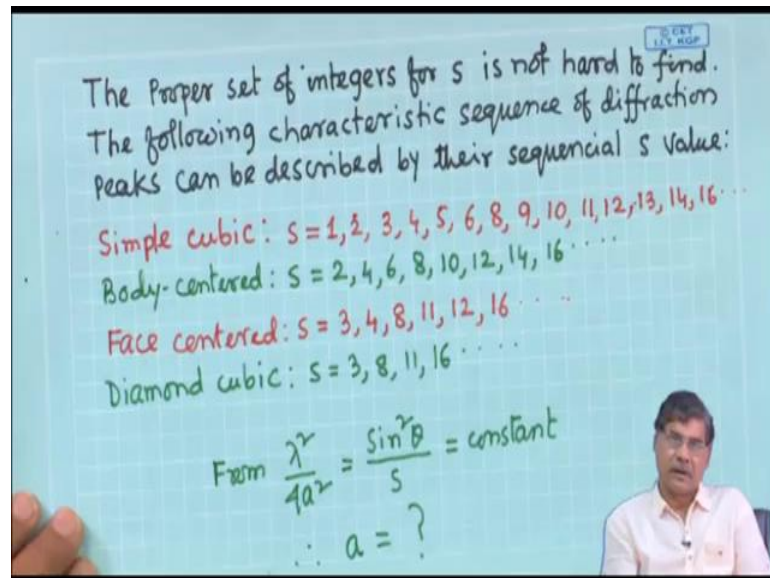 © CET
I.I.T. KGP
The Proper set of integers for s is not hard to find.
The following characteristic sequence of diffraction
Peaks can be described by their sequencial s value:
Simple cubic: S = 1, 2, 3, 4, 5, 6, 8, 9, 10, 11, 12, 13, 14, 16 ...
Body-centered: S = 2, 4, 6, 8, 10, 12, 14, 16 ....
Face centered: S = 3, 4, 8, 11, 12, 16 ....
Diamond cubic: S = 3, 8, 11, 16 .....
From λ²/4a² = Sin²θ/S = constant
∴ a = ?